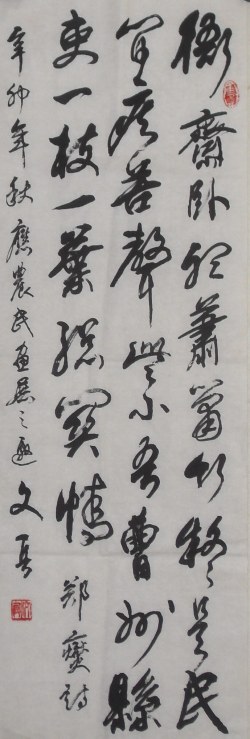 衙齋卧聽蕭蕭竹疑是民
間疾苦聲些小吾曹州縣
吏一枝一葉總關情 鄭燮詩
辛卯年秋應農民畫展之邀 文